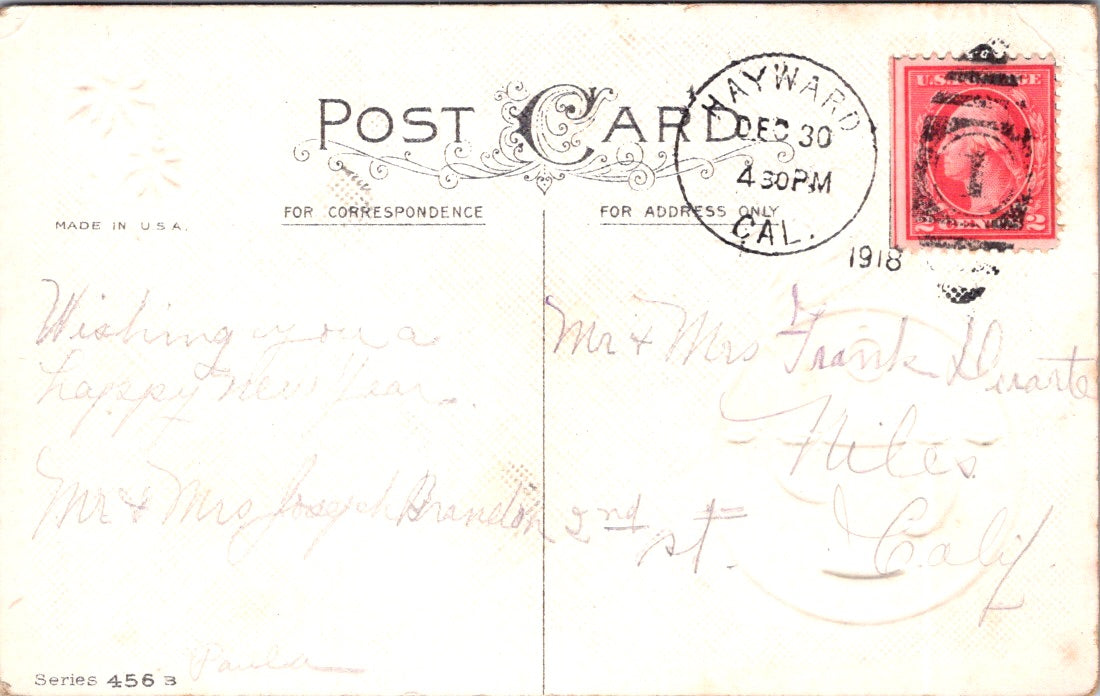 POST CARD
HAYWARD
DEC 30
4 30 PM
CAL.
1918
U.S. POSTAGE
2 CENTS 2
1
MADE IN U.S.A.
FOR CORRESPONDENCE
FOR ADDRESS ONLY
Wishing you a
happy New Year.
Mr & Mrs Joseph Brandon
Mr & Mrs Frank Duarte
Niles
2nd st.
Calif.
Series 456 B